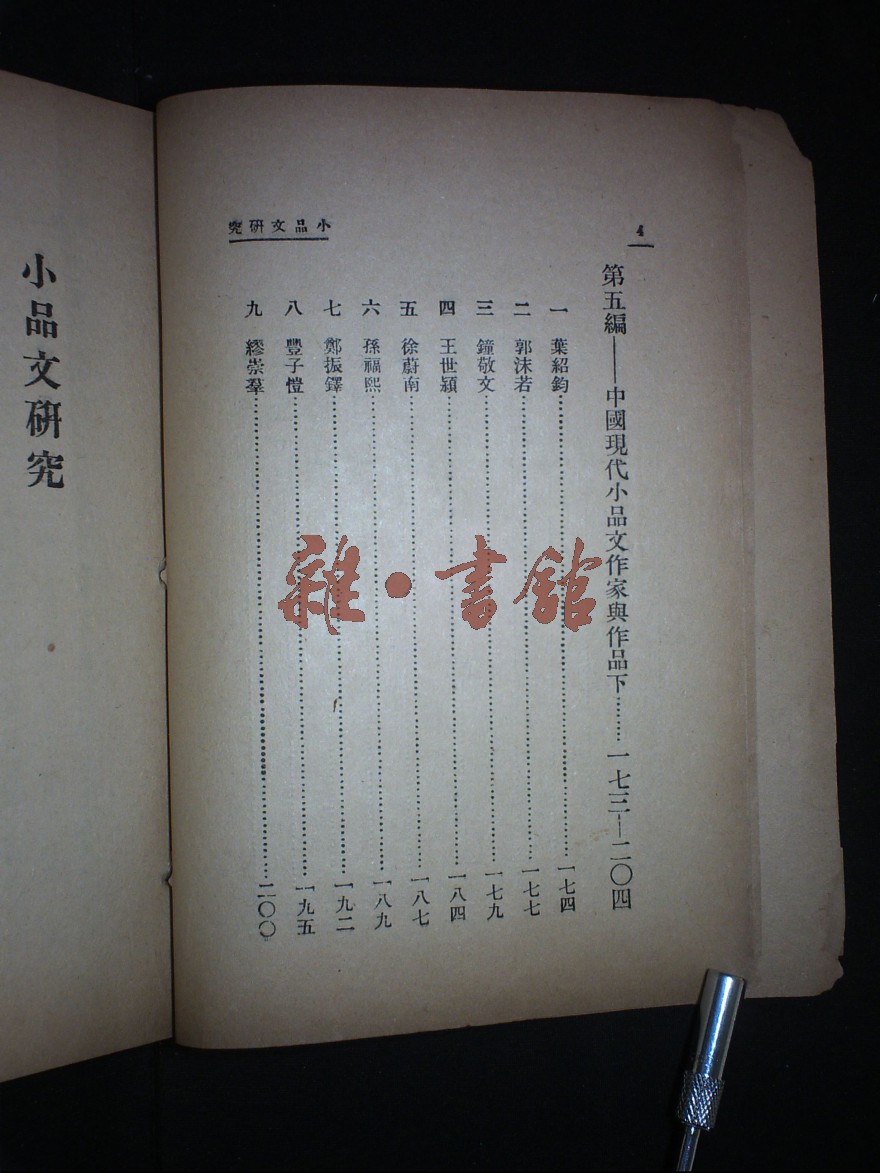 4
小品文研究
第五編——中國現代小品文作家與作品下………一七三—二〇四
一 葉紹鈞………一七四
二 郭沫若………一七七
三 鐘敬文………一七九
四 王世穎………一八四
五 徐蔚南………一八七
六 孫福熙………一八九
七 鄭振鐸………一九二
八 豐子愷………一九五
九 繆崇羣………二〇〇
小品文研究
雜·書館